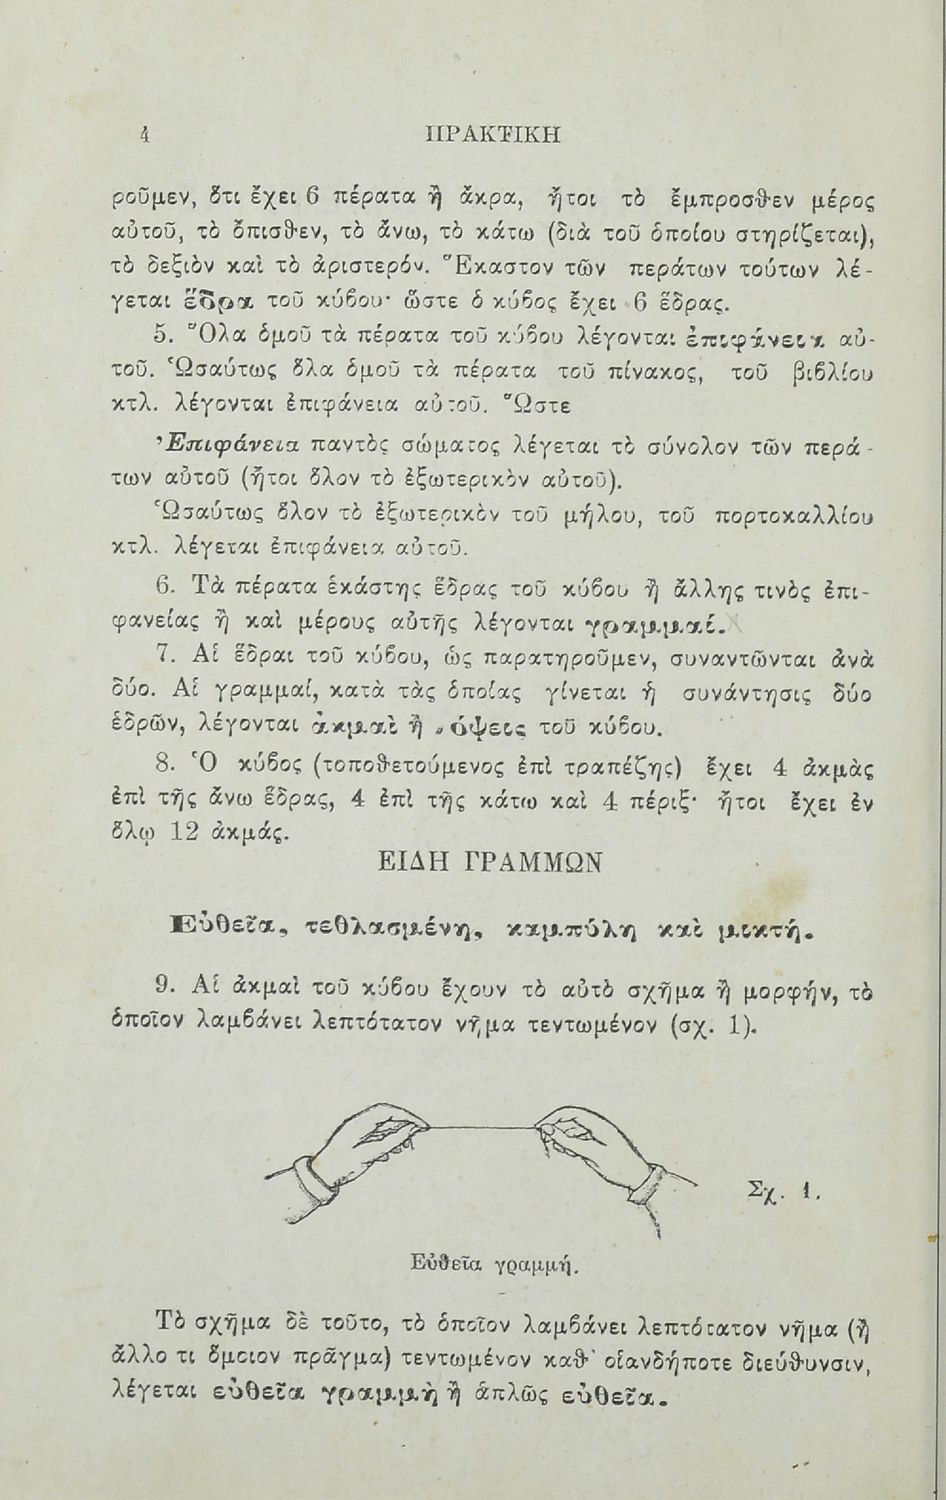 4 ΠΡΑΚΤΙΚΗ
ροῦμεν, ὅτι ἔχει 6 πέρατα ἢ ἄκρα, ἤτοι τὸ ἔμπροσθεν μέρος
αὐτοῦ, τὸ ὄπισθεν, τὸ ἄνω, τὸ κάτω (διὰ τοῦ ὁποίου στηρίζεται),
τὸ δεξιὸν καὶ τὸ ἀριστερόν. Ἕκαστον τῶν περάτων τούτων λέ-
γεται ἕδρα τοῦ κύβου· ὥστε ὁ κύβος ἔχει 6 ἕδρας.
5. Ὅλα ὁμοῦ τὰ πέρατα τοῦ κύβου λέγονται ἐπιφάνεια αὐ-
τοῦ. Ὡσαύτως ὅλα ὁμοῦ τὰ πέρατα τοῦ πίνακος, τοῦ βιβλίου
κτλ. λέγονται ἐπιφάνεια αὐτοῦ. Ὥστε
Ἐπιφάνεια παντὸς σώματος λέγεται τὸ σύνολον τῶν περά-
των αὐτοῦ (ἤτοι ὅλον τὸ ἐξωτερικὸν αὐτοῦ).
Ὡσαύτως ὅλον τὸ ἐξωτερικὸν τοῦ μήλου, τοῦ πορτοκαλλίου
κτλ. λέγεται ἐπιφάνεια αὐτοῦ.
6. Τὰ πέρατα ἑκάστης ἕδρας τοῦ κύβου ἢ ἄλλης τινὸς ἐπι-
φανείας ἢ καὶ μέρους αὐτῆς λέγονται γραμμαί.
7. Αἱ ἕδραι τοῦ κύβου, ὡς παρατηροῦμεν, συναντῶνται ἀνὰ
δύο. Αἱ γραμμαί, κατὰ τὰς ὁποίας γίνεται ἡ συνάντησις δύο
ἑδρῶν, λέγονται ἀκμαὶ ἢ κόψεις τοῦ κύβου.
8. Ὁ κύβος (τοποθετούμενος ἐπὶ τραπέζης) ἔχει 4 ἀκμὰς
ἐπὶ τῆς ἄνω ἕδρας, 4 ἐπὶ τῆς κάτω καὶ 4 πέριξ· ἤτοι ἔχει ἐν
ὅλῳ 12 ἀκμάς.
ΕΙΔΗ ΓΡΑΜΜΩΝ
Εὐθεῖα, τεθλασμένη, καμπύλη καὶ μικτή.
9. Αἱ ἀκμαὶ τοῦ κύβου ἔχουν τὸ αὐτὸ σχῆμα ἢ μορφήν, τὸ
ὁποῖον λαμβάνει λεπτότατον νῆμα τεντωμένον (σχ. 1).
Σχ. 1.
Εὐθεῖα γραμμή.
Τὸ σχῆμα δὲ τοῦτο, τὸ ὁποῖον λαμβάνει λεπτότατον νῆμα (ἢ
ἄλλο τι ὅμοιον πρᾶγμα) τεντωμένον καθ' οἱανδήποτε διεύθυνσιν,
λέγεται εὐθεῖα γραμμὴ ἢ ἁπλῶς εὐθεῖα.